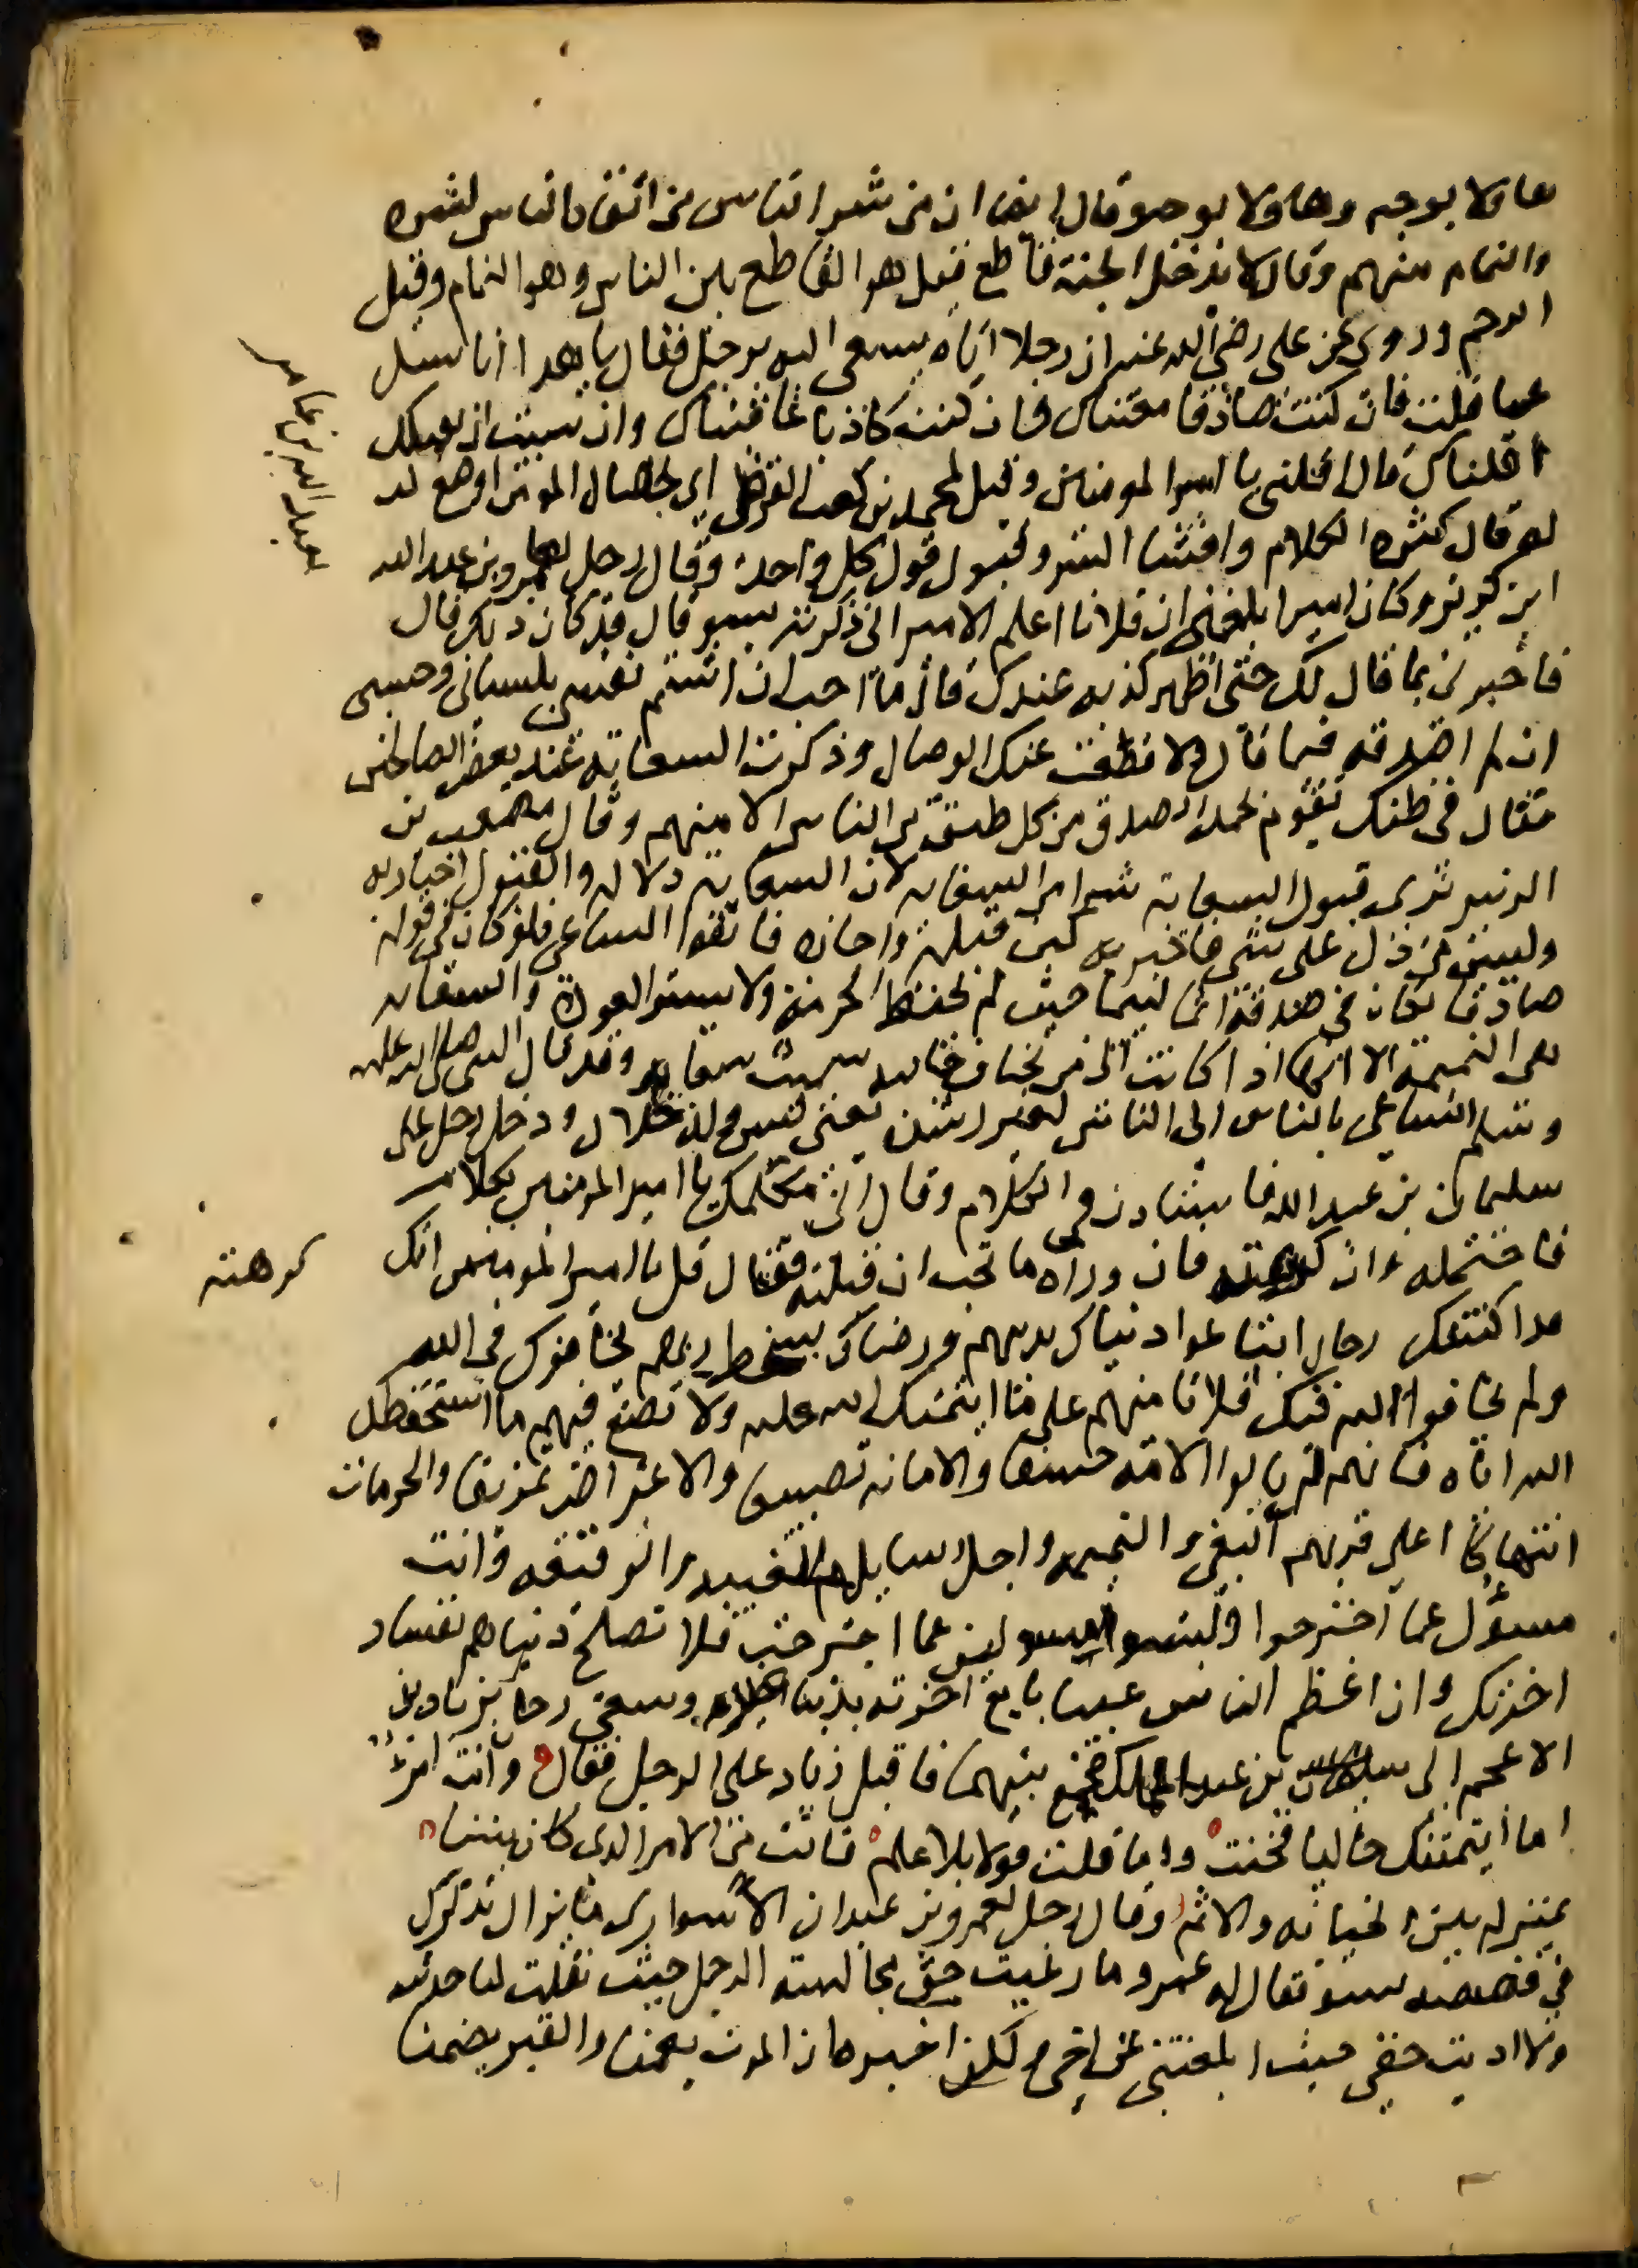 هاولا بوجه وهاولا بوجه وقال ايضا ان من شر الناس من اتقاه الناس لشره
والنمام منهم وقال لا يدخل الجنة قاطع قيل هو القاطع بين الناس وهو النمام وقيل
الرحم وروي عن علي رضي الله عنه ان رجلا اتاه يسعى اليه برجل فقال يا هذا انا نسل
عما قلت فان كنت صادقا مقتناك وان كنت كاذبا عاقبناك وان شيت ان نقيلك
اقلناك قال اقلني يا امير المومنين وقيل لمحمد بن كعب القرظي اي خصال المومن اوضع له
لعبد الله بن عامر
له قال كثرة الكلام وافشا السر وقبول قول كل واحد وقال رجل لعمرو بن عبد الله
ابن كريز وكان اميرا بلغني ان فلانا اعلم الامير اني ذكرته بسو قال قد كان ذلك قال
فاخبرني بما قال لك حتى اظهر كذبه عندك قال ما احب ان اشتم نفسي بلساني وحسبي
اني لم اصدقه فيما قال ولا قطعت عنك الوصال وذكرت السعاية عند بعض الصالحين
فقال في ظنك بقوم يحمد الصدق من كل طبقة من الناس الا منهم وقال مصعب بن
الزبير نرى قبول السعاية شرا من السعاية لان السعاية دلالة والقبول اجازة
وليس من دل على شي فاخبر به كمن قبله واجازه فاتقوا الساعي فلو كان في قوله
صادقا لكان في صدقه لئيما حيث لم يحفظ الحرمة ولا يستر العورة والسعاية
هي النميمة الا انها اذا كانت الى من يخاف جانبه سميت سعاية وقد قال النبي صلى الله عليه
وسلم الساعي بالناس الى الناس لغير رشدة يعني ليس ولد حلال ودخل رجل على
سليمان بن عبد الله فاستاذن في الكلام وقال اني مكلمك يا امير المومنين بكلام
فاحتمله وان كرهته فان وراه ما تحب ان قبلته فقال قل يا امير المومنين انك
كرهته
قد اكتنفك رجال ابتاعوا دنياك بدينهم ورضاك بسخط ربهم خافوك في الله
ولم يخافوا الله فيك فلا تامنهم على ما ايتمنك الله عليه ولا تصغ فيهم ما استحفظك
الله اياه فانهم لم يالوا الامة خسفا والامانة تضييعا والاعراض تمزيقا والحرمات
انتهاكا اعلى قربهم البغي والنميمة واجل وسايلهم الغيبة والوقيعة وانت
مسؤل عما اجترحوا وليسوا المسولين عما اجترحت فلا تصلح دنياهم بفساد
اخرتك وان اعظم الناس غبنا بايع اخرته بدنيا غيره وسعى رجل بزياد بن
الاعجم الى سليمان بن عبد الملك فجمع بينهما فاقبل زياد على الرجل فقال وانت امرؤ
اما ايتمنتك خاليا فخنت واما قلت قولا بلا علم فانت من الامر الذي كان بيننا
بمنزلة بين الخيانة والاثم وقال رجل لعمرو بن عبيد ان الاسواري ما يزال يذكرك
في قصصه بسو فقال له عمرو ما رعيت حق مجالسة الرجل حيث نقلت لنا حديثه
ولا اديت حقي حيث ابلغتني عن اخي ولكن اخبره ان الموت يعمنا والقبر يضمنا